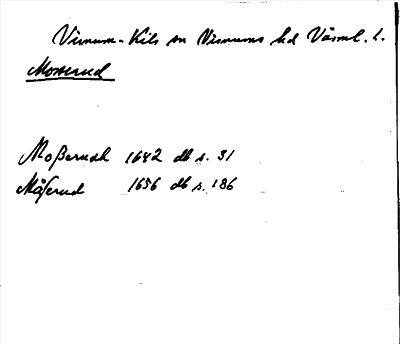 Visnum-Kils sn Visnums hd Värml. l.
Mosserud
Moßerudh 1642 db s. 31
Måserud 1656 db s. 186